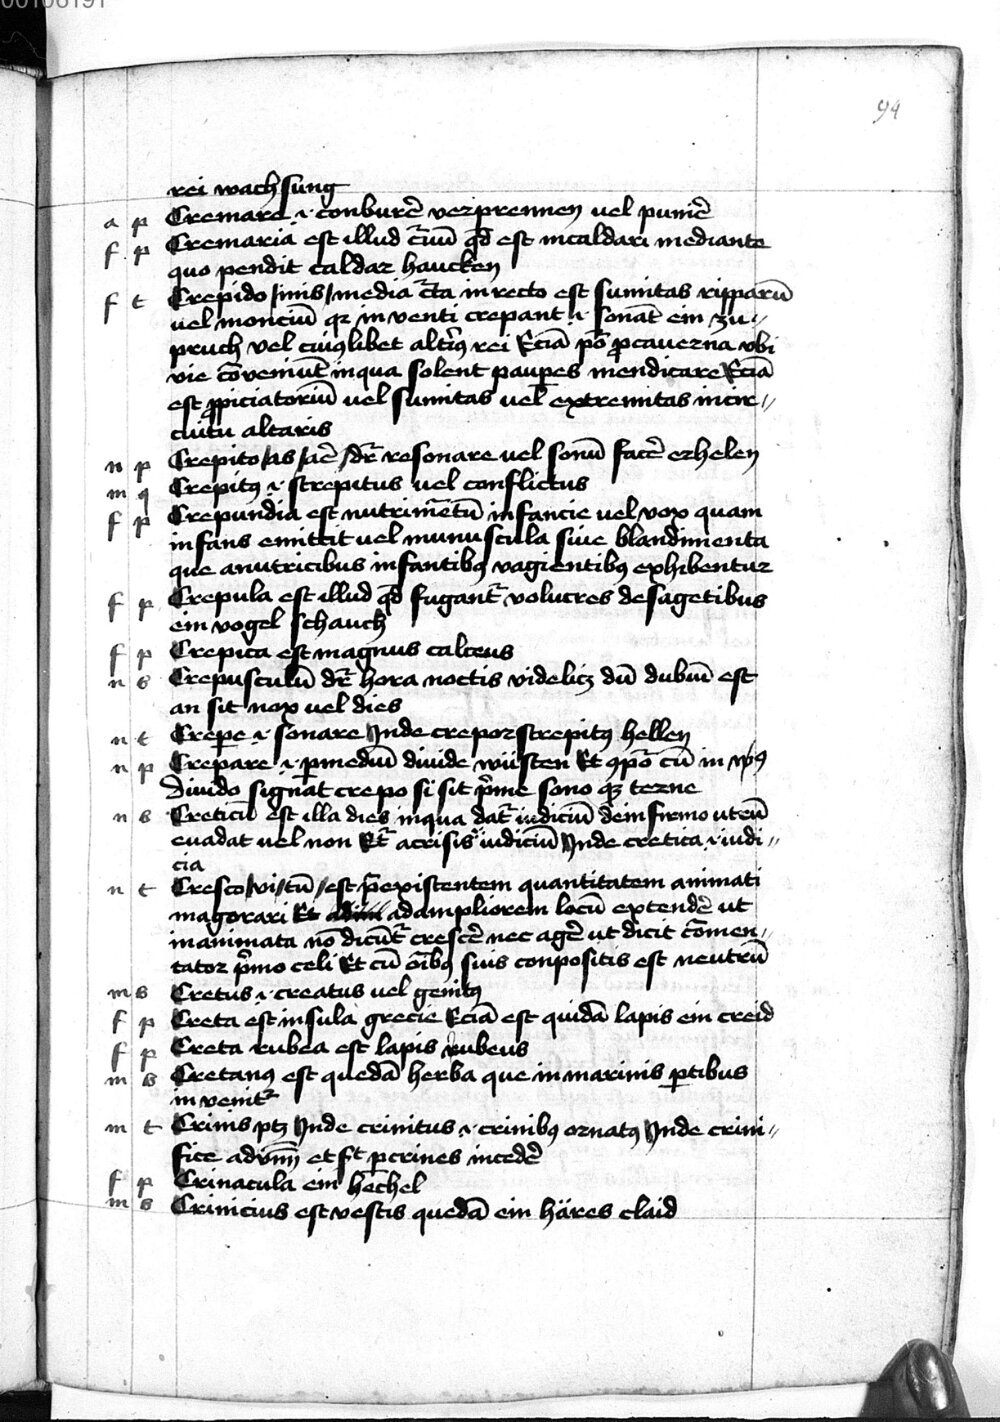 00106191
94
rei wachsung
a p Cremare .i. conburē verprennen vel punirē
f p Cremaria est illud c̄iuū qd̄ est in caldari mediante
quo pendit caldar haucken
f t Crepido /inis/ media cr̄ta in recto est sumitas ripparū
vel monciū qꝛ in venti crepant .i. sonāt ein zu〃
pruch vel cuiꝯlibet altīꝯ rei Eciā po̅ ꝓ cauerna vbi
vie co̅veniūt in qua solent paupes mendicare Eciā
est ꝓpiciatoriū vel sumitas vel extremitas in cir〃
cuitu altaris
n p Crepito /as /arē /dr̄ resonare vel sonū facē erhelen
m q Crepitꝯ .i. strepitus vel conflictus
f p Crepundia est nutrimētū infancie vel vox quam
infans emittit vel munuscula siue blandimenta
que a nutricibus infantibꝯ vagientibꝯ exhibentur
f p Crepula est illud qd̄ fugant᷑ volucres de sagetibus
ein vogel schauch
f p Crepita est magnus calceus
n s Crepusculū dr̄ hora noctis videlicꝫ dū dubiū est
an sit nox vel dies
n t Crepe .i. sonare Inde crepor strepitꝯ hellen
n p Crepare .i. ꝑ mediū divide wüsten Et ꝯpo̅ cū in
Divido signāt crepo si sit p̄me sono qꝫ terne
n s Creticū est illa dies in qua dat᷑ iudiciū de infirmo utrū
euadat vel non Et᷑ a crisis iudiciū Inde cretica .i. iudi〃
cia
n t Cresco /vi /tū /est p̄existentem quantitatem animati
magorari Et ad ampliorem locū extendē ut
inanimata nō dicūt᷑ crescē nec agē ut dicit co̅men〃
tator p̄mo celi Et cū oībꝯ suis conpositis est neutrū
m s Cretus .i. creatus vel genitꝯ
f p Creta est insula grecie Eciā est quidā lapis ein creid
f p Creta rubea est lapis rubeus
m s Cretanꝯ est quedā herba que in marinis ꝑtibus
in venit᷑
m t Crinis ptꝫ Inde crinitus .i. crinibꝯ ornatꝯ Inde crini〃
fice et ꝑ crines incedē
f p Crinacula ein hechel
m s Crinicius est vestis quedā ein häres claid